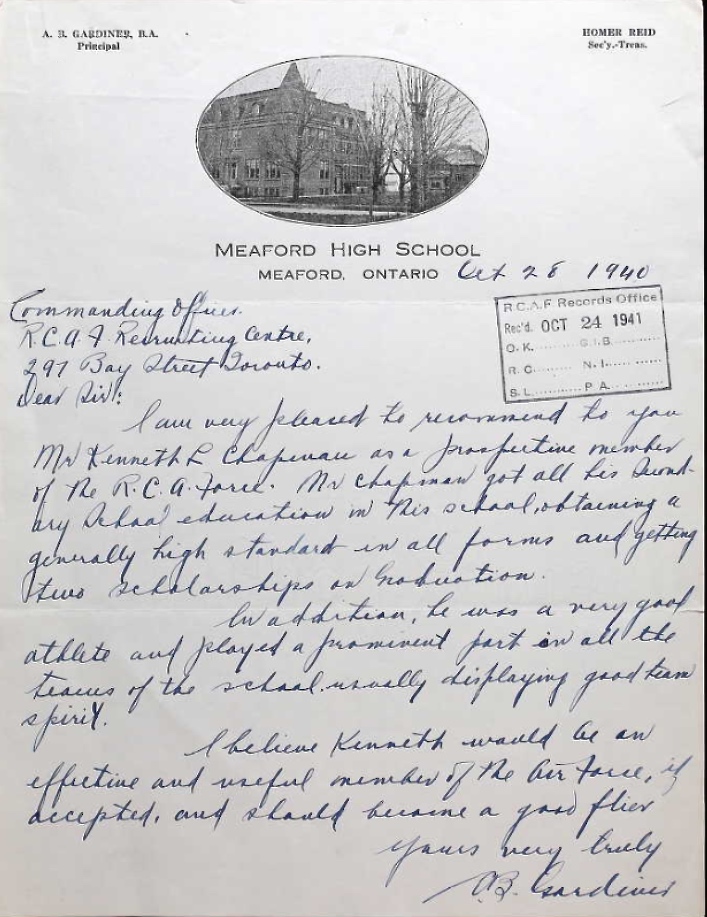 A. B. GARDINER, B.A.
Principal
HOMER REID
Sec'y.-Treas.
MEAFORD HIGH SCHOOL
MEAFORD, ONTARIO Oct 28 1940
R.C.A.F Records Office
Rec'd. OCT 24 1941
O.K. G.I.B.
R.C. N.I.
S.L. P.A.
Commanding Officer.
R.C.A.F. Recruiting Centre,
297 Bay Street Toronto.
Dear Sir:
I am very pleased to recommend to you
Mr Kenneth L Chapman as a prospective member
of the R.C.A. Force. Mr Chapman got all his Second-
ary School education in this school, obtaining a
generally high standard in all forms and getting
two scholarships on Graduation.
In addition, he was a very good
athlete and played a prominent part in all the
teams of the school usually displaying good team
spirit.
I believe Kenneth would be an
effective and useful member of the Air Force, if
accepted, and should become a good flier
Yours very truly
A.B. Gardiner